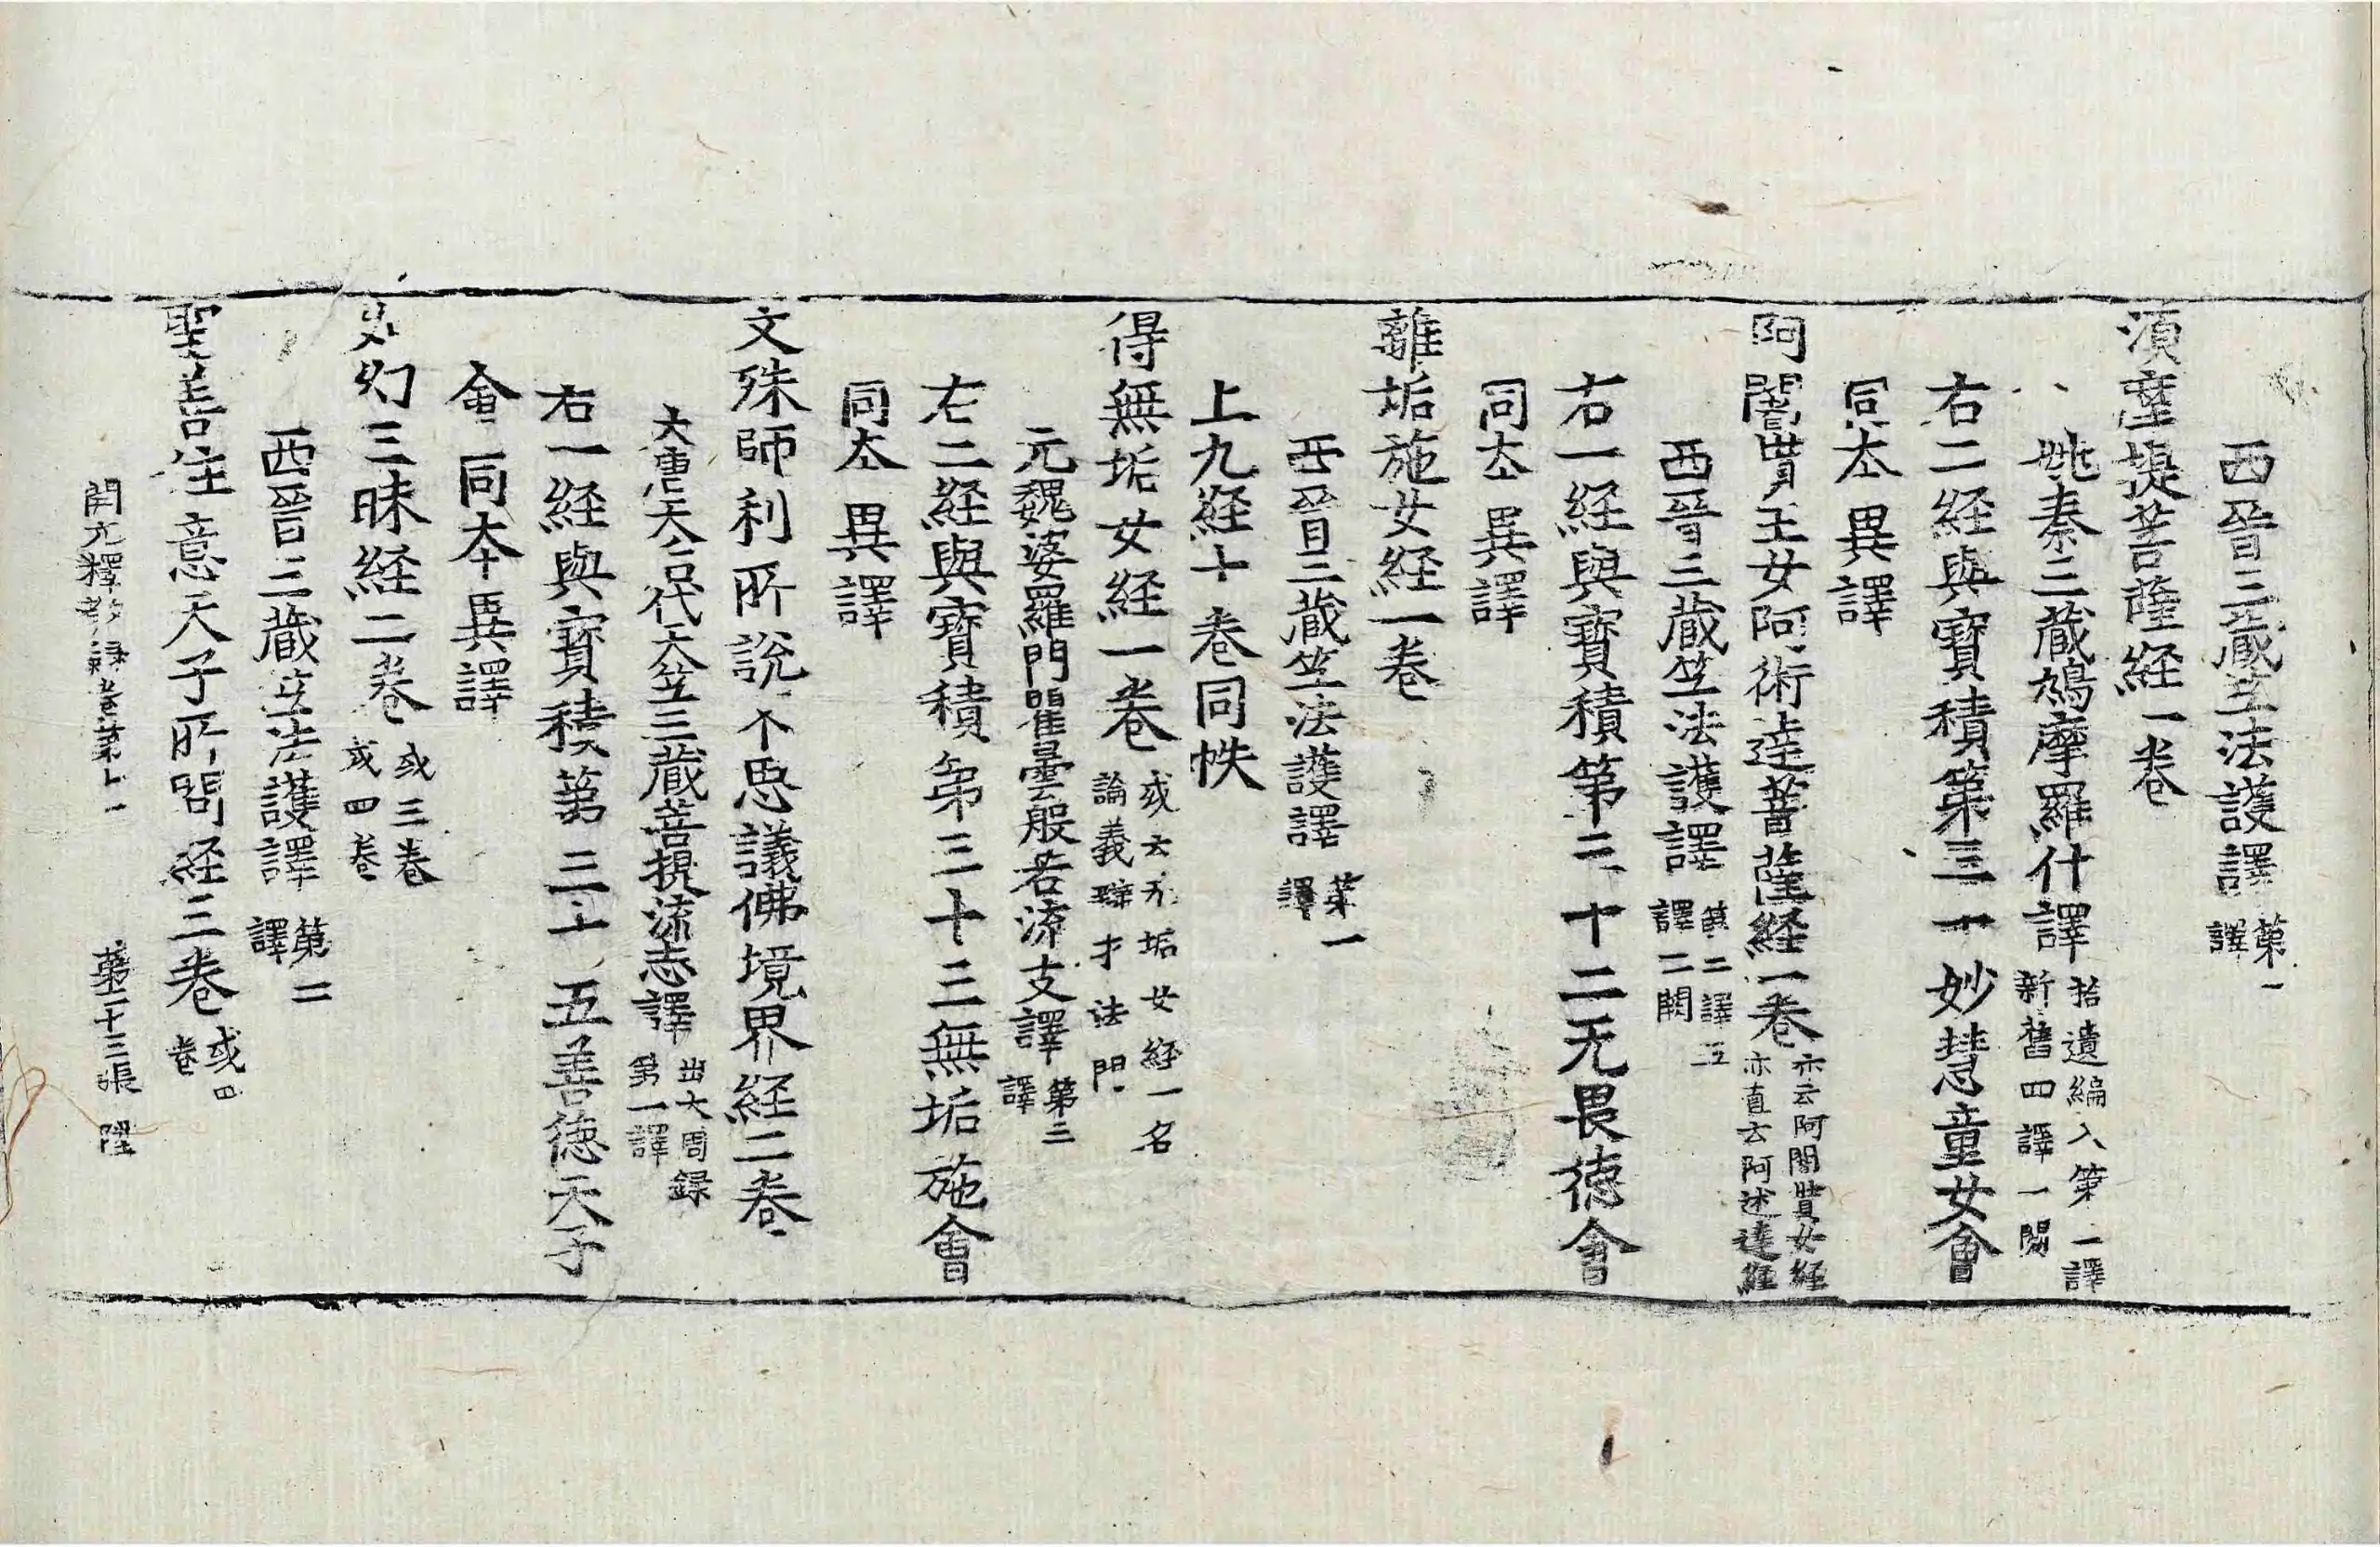 西晉三藏竺法護譯第一譯
須摩提菩薩経一卷
姚秦三藏鳩摩羅什譯拾遺編入第一譯新舊四譯一闕
右二経與寶積第三十妙慧童女會
同夲異譯
阿闍貰王女阿術達菩薩経一卷亦云阿闍貰女経亦直云阿述達経
西晉三藏竺法護譯第二譯五譯二闕
右一経與寶積第三十二无畏德會
同夲異譯
離垢施女経一卷
西晉三藏竺法護譯第一譯
上九経十卷同帙
得無垢女経一卷或云无垢女経一名論義辯才法門
元魏婆羅門瞿曇般若流支譯第三譯
右二経與寶積第三十三無垢施會
同夲異譯
文殊師利所說不思議佛境界経二卷
大唐天后代天竺三藏菩提流志譯出大周録第一譯
右一経與寶積第三十五善德天子
會同夲異譯
如幻三昧経二卷或三卷或四卷
西晉三藏竺法護譯第二譯
聖善住意天子所問経三卷或四卷
開元釋教録卷第十一 第二十三張 陞